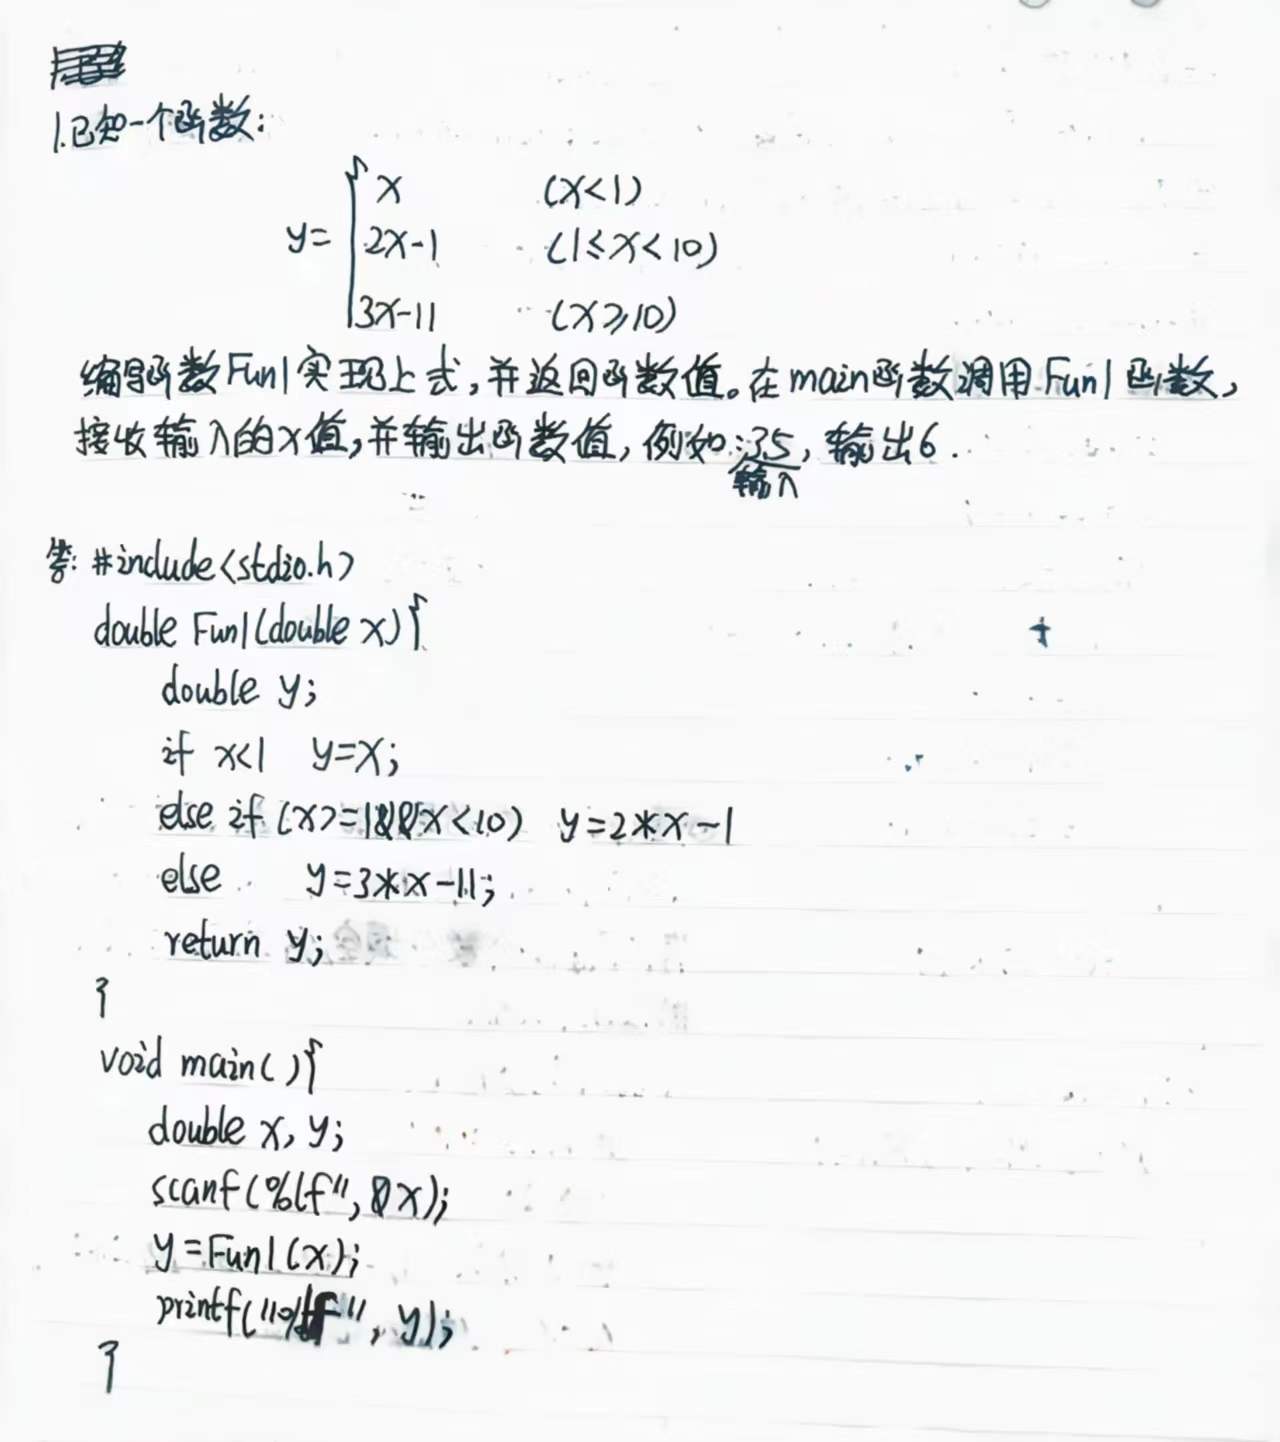 1.已知一个函数:
y= { x (x<1)
2x-1 (1≤x<10)
3x-11 (x≥10)
编写函数Fun1实现上式,并返回函数值。在main函数调用Fun1函数,
接收输入的x值,并输出函数值,例如:输入3.5,输出6.
答: #include<stdio.h>
double Fun1(double x){
double y;
if x<1 y=x;
else if (x>=1&&x<10) y=2*x-1
else y=3*x-11;
return y;
}
void main(){
double x, y;
scanf(%lf", &x);
y=Fun1(x);
printf("%lf", y);
}